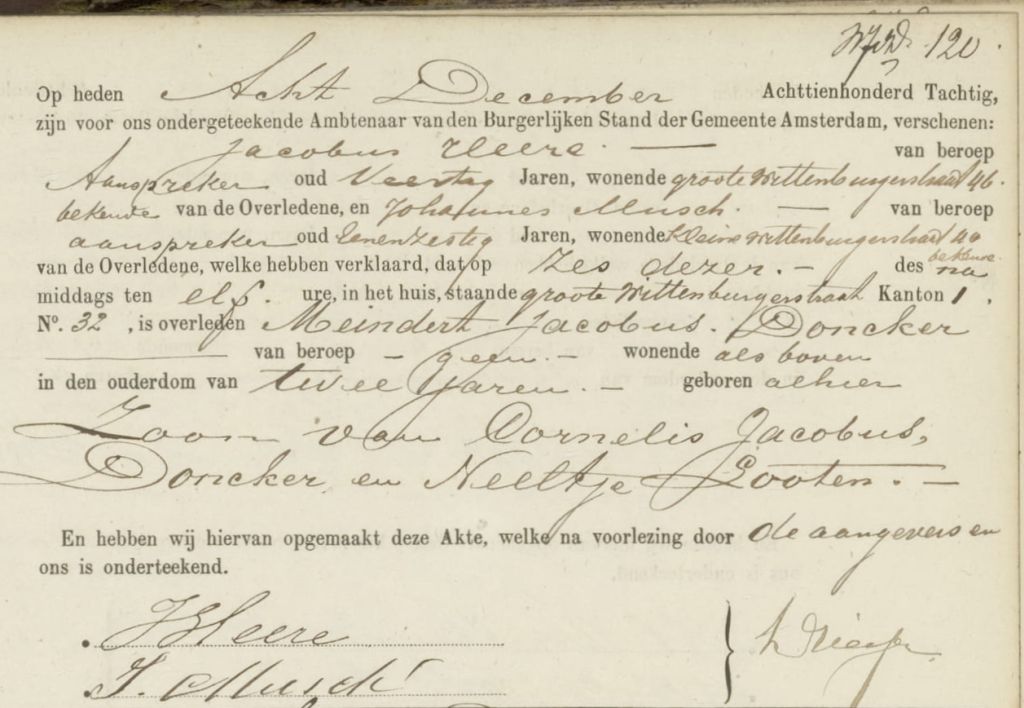 120.
Op heden Acht December Achttienhonderd Tachtig,
zijn voor ons ondergeteekende Ambtenaar van den Burgerlijken Stand der Gemeente Amsterdam, verschenen:
Jacobus Heere. — van beroep
Aanspreker oud Veertig Jaren, wonende groote Wittenburgerstraat 46.
bekende van de Overledene, en Johannes Musch. — van beroep
aanspreker oud Eenenzestig Jaren, wonende Kleine Wittenburgerstraat 40 bekende
van de Overledene, welke hebben verklaard, dat op Zes dezer. – des na
middags ten elf. ure, in het huis, staande groote Wittenburgerstraat Kanton 1,
N°. 32, is overleden Meindert Jacobus. Doncker
— van beroep – geen. – wonende als boven
in den ouderdom van twee Jaren. – geboren alhier
Zoon van Cornelis Jacobus,
Doncker, en Neeltje Gooten. —
En hebben wij hiervan opgemaakt deze Akte, welke na voorlezing door de aangevers en
ons is onderteekend.
JHeere
J. Musch